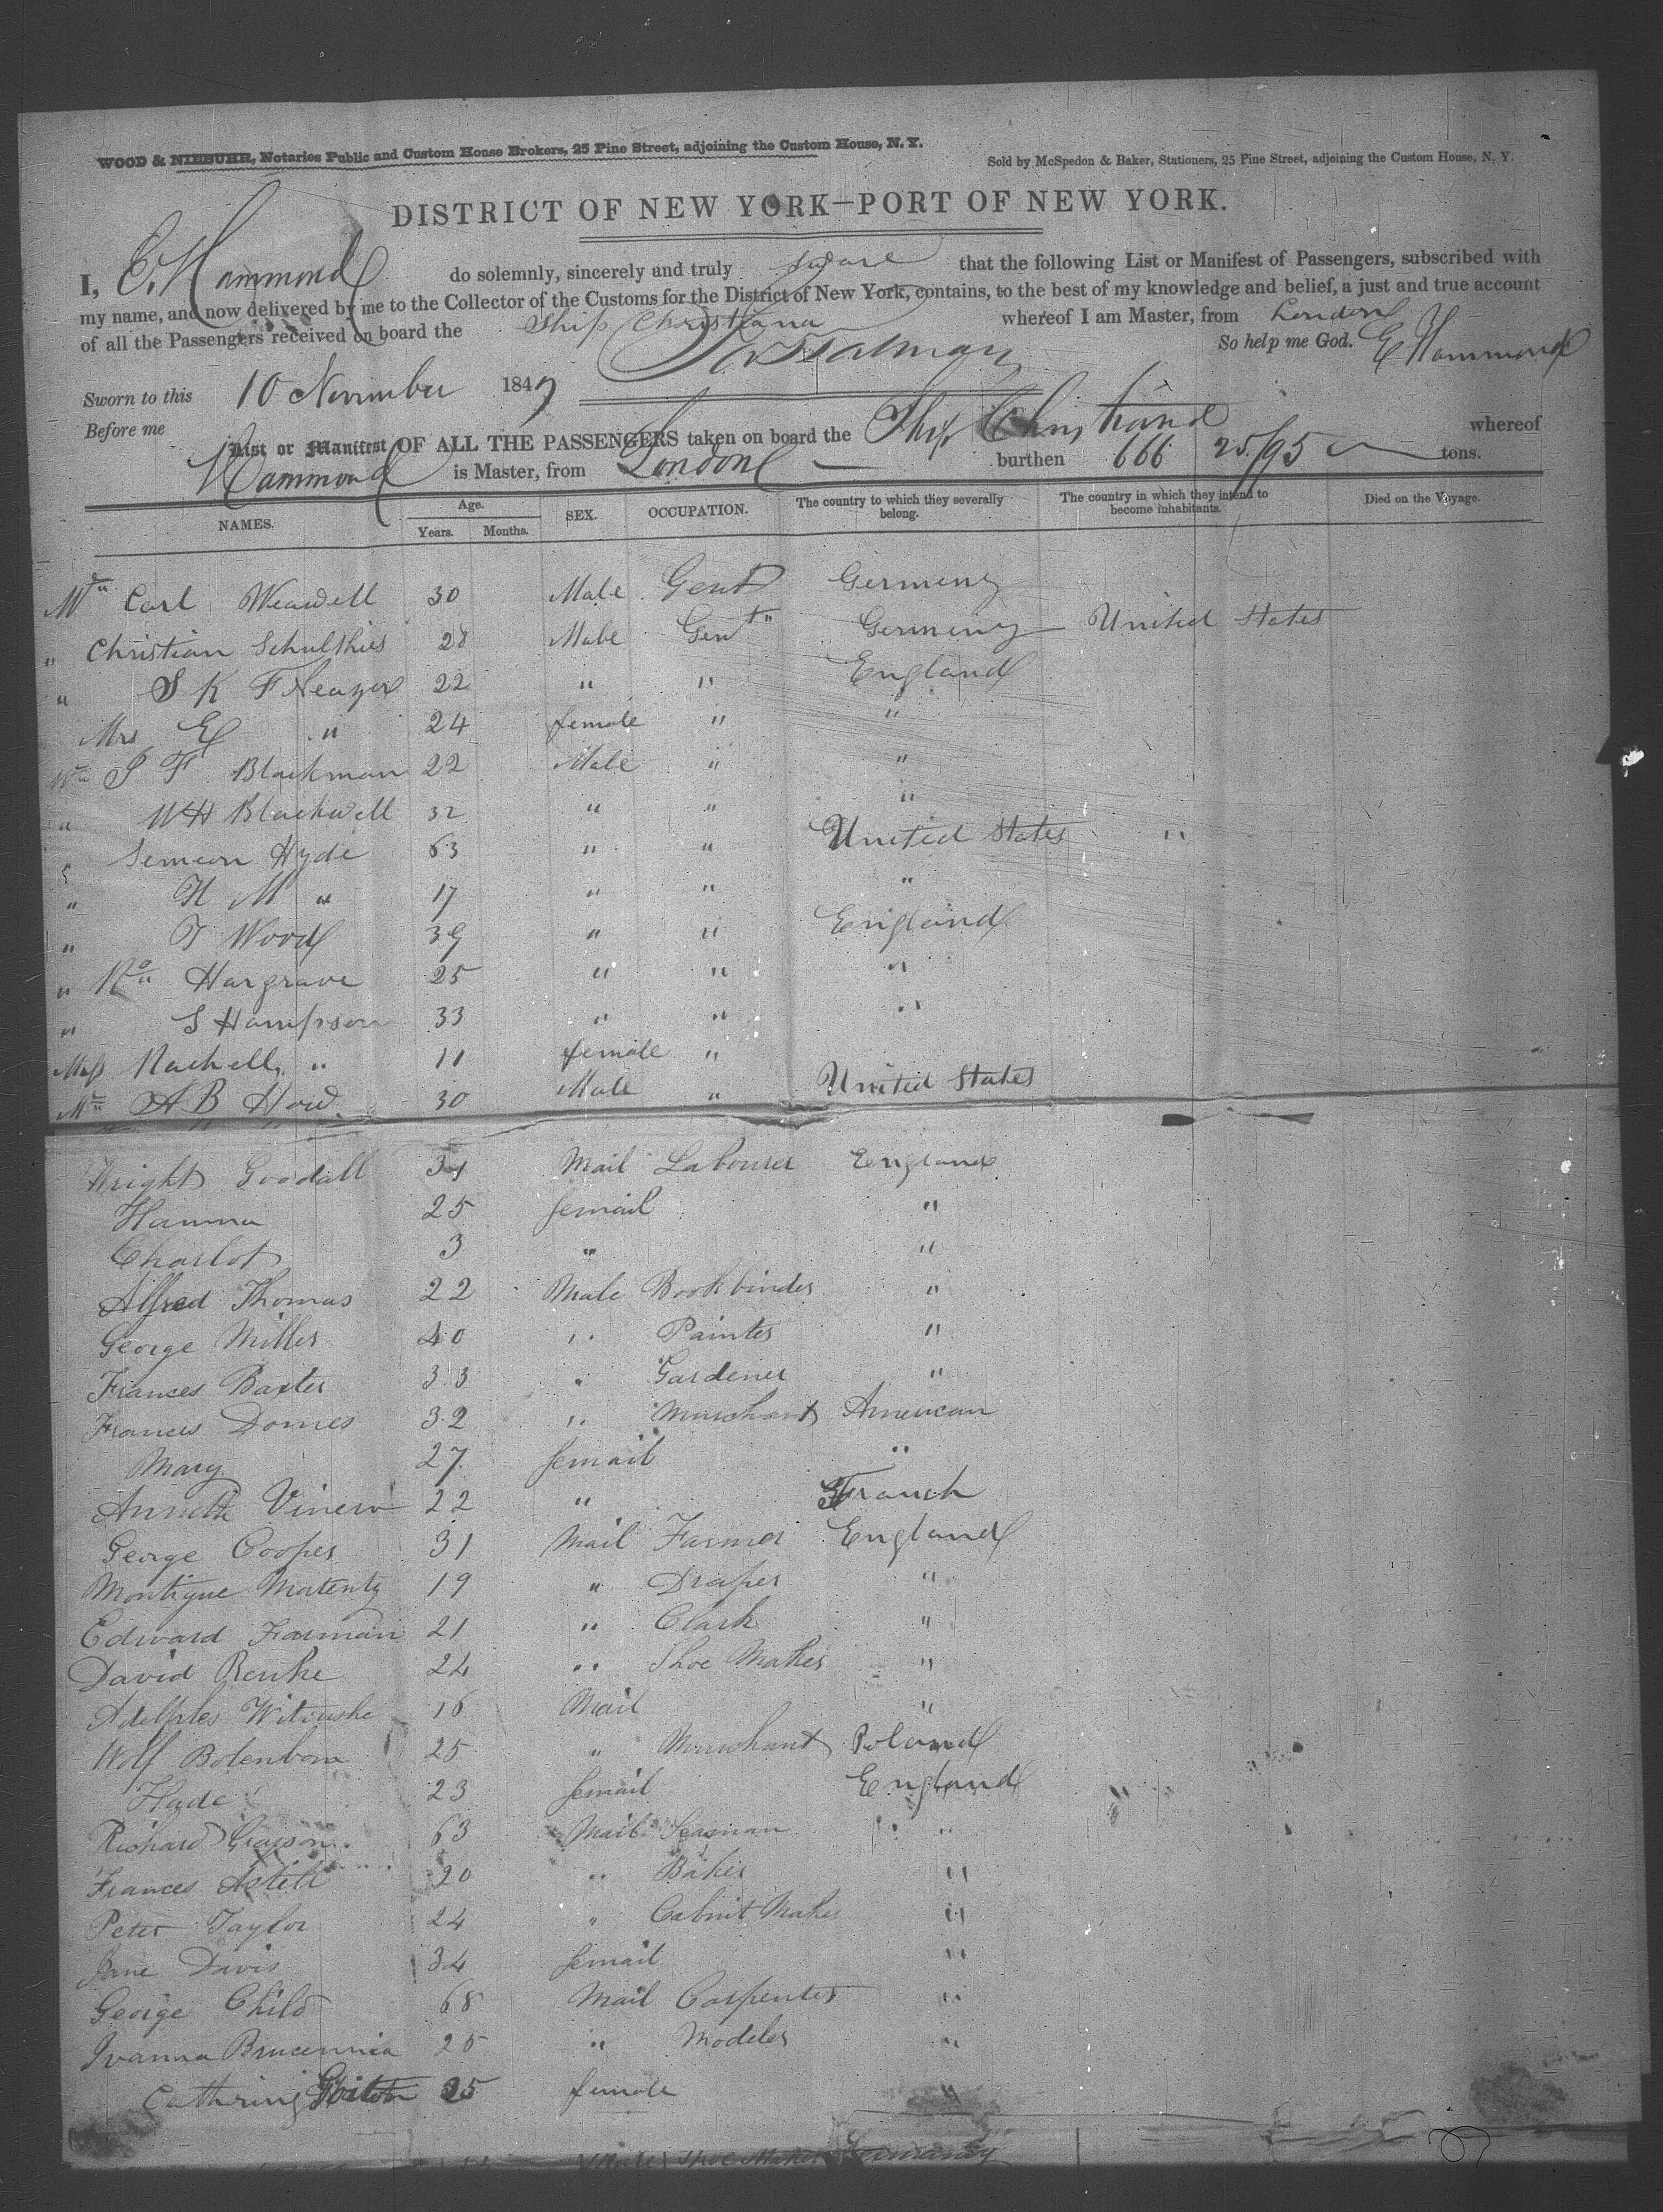 WOOD & NIEBUHR, Notaries Public and Custom House Brokers, 25 Pine Street, adjoining the Custom House, N. Y.
Sold by McSpedon & Baker, Stationers, 25 Pine Street, adjoining the Custom House, N. Y.
DISTRICT OF NEW YORK—PORT OF NEW YORK.
I, E. Hammond do solemnly, sincerely and truly swear that the following List or Manifest of Passengers, subscribed with
my name, and now delivered by me to the Collector of the Customs for the District of New York, contains, to the best of my knowledge and belief, a just and true account
of all the Passengers received on board the Ship Christiana whereof I am Master, from London
So help me God. E Hammond
Sworn to this 10 November 1847
Before me
List or Manifest OF ALL THE PASSENGERS taken on board the Ship Christiana whereof
Hammond is Master, from London burthen 666 25/95 tons.
NAMES. Age. Years. Months. SEX. OCCUPATION. The country to which they severally belong. The country in which they intend to become inhabitants. Died on the Voyage.
Carl 30 Male Gent Germeny
" Christian Schulthies 28 Male Gent Germeny United States
" S K 22 " " England
Mrs E " 24 female " "
S F Blackman 22 Male " "
" WH Blackwell 32 " " "
" Simeon Hyde 63 " " United States "
" H M " 17 " " "
" T Wood 39 " " England
" Hargrave 25 " " "
" S Hampson 33 " " "
Miss Rachell " 11 female "
A B How. 30 Male " United States
Wright Goodall 31 Mail Labourer England
Hanna 25 femail "
Charlot 3 " "
Alfred Thomas 22 Male Bookbinder "
George Miller 40 " Painter "
Frances Baxter 33 " Gardener "
Frances Domes 32 " Murchant American
Mary 27 femail "
Annette 22 " Franch
George Cooper 31 Mail Farmer England
Montigue 19 " Draper "
Edward Farman 21 " Clark "
David 24 " Shoe Maker "
16 Mail "
Wolf 25 " Murchant Poland
Hade 23 femail England
Richard 63 Mail Seaman "
Frances Astell 20 " Baker "
Peter Taylor 24 " Cabnit Maker "
Jane Davis 34 femail "
George Child 68 Mail Carpenter "
25 " Modeler "
Cathring 25 female "
Male Shoe Maker Germany